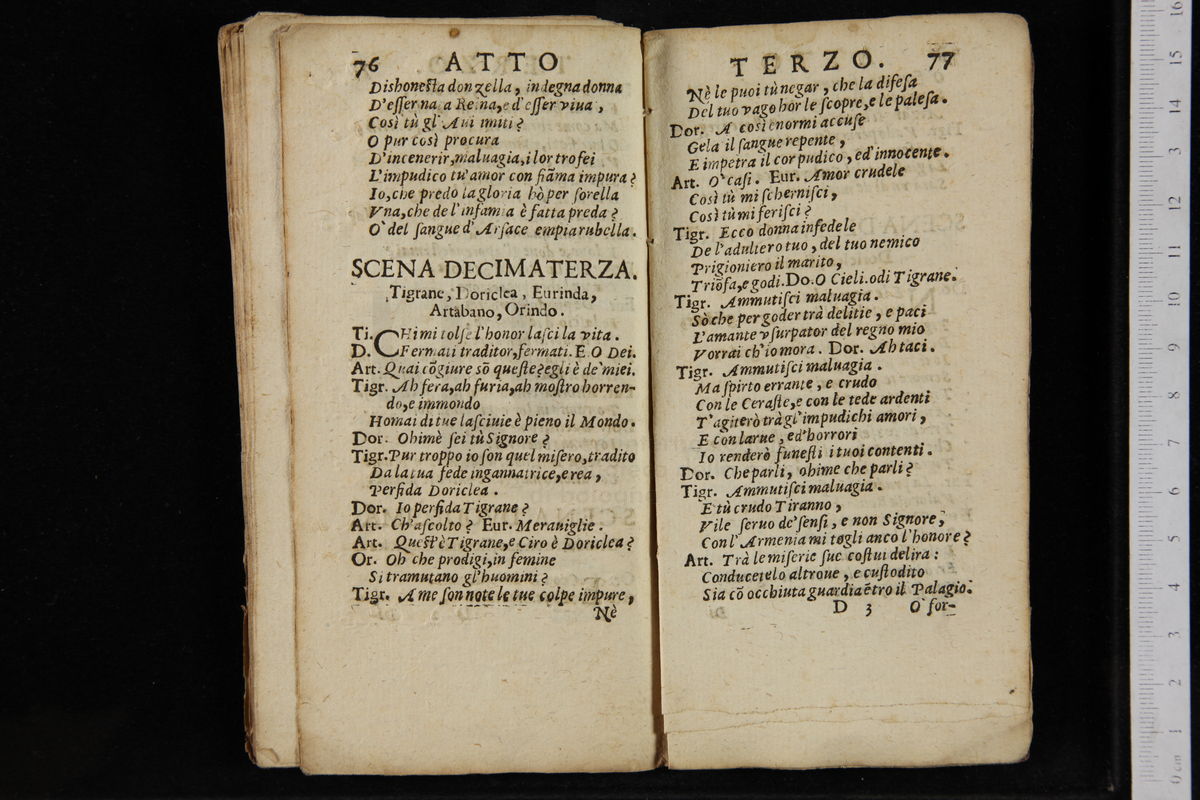 76 ATTO
Dishonesta donzella, indegna donna
D'esser nata Reina, e d'esser viua,
Così tù gl' Aui imiti?
O pur così procura
D'incenerir, maluagia, i lor trofei
L'impudico tu' amor con fiãma impura?
Io, che predo la gloria hò per sorella
Vna, che de l'infamia è fatta preda?
O' del sangue d'Arsace empia rubella.
SCENA DECIMATERZA.
Tigrane, Doriclea, Eurinda,
Artabano, Orindo.
Ti. CHi mi tolse l'honor lasci la vita.
D. Fermati traditor, fermati. E. O Dei.
Art. Quai cõgiure sõ queste? egli è de' miei.
Tigr. Ah fera, ah furia, ah mostro horren-
do, e immondo
Homai di tue lasciuie è pieno il Mondo.
Dor. Ohimè sei tù Signore?
Tigr. Pur troppo io son quel misero, tradito
Da la tua fede ingannatrice, e rea,
Perfida Doriclea.
Dor. Io perfida Tigrane?
Art. Ch'ascolto? Eur. Merauiglie.
Art. Quest'è Tigrane, e Ciro è Doriclea?
Or. Oh che prodigi, in femine
Si tramutano gl'huomini?
Tigr. A me son note le tue colpe impure,
Nè
TERZO. 77
Nè le puoi tù negar, che la difesa
Del tuo vago hor le scopre, e le palesa.
Dor. A così enormi accuse
Gela il sangue repente,
E impetra il cor pudico, ed' innocente.
Art. O' casi. Eur. Amor crudele
Così tù mi schernisci,
Così tù mi ferisci?
Tigr. Ecco donna infedele
De l'adultero tuo, del tuo nemico
Prigioniero il marito,
Triõfa, e godi. Do. O Cieli. odi Tigrane.
Tigr. Ammutisci maluagia.
Sò che per goder trà delitie, e paci
L'amante vsurpator del regno mio
Vorrai ch'io mora. Dor. Ah taci.
Tigr. Ammutisci maluagia.
Ma spirto errante, e crudo
Con le Ceraste, e con le tede ardenti
T'agiterò trà gl'impudichi amori,
E con larue, ed' horrori
Io renderò funesti i tuoi contenti.
Dor. Che parli, ohime che parli?
Tigr. Ammutisci maluagia.
E tù crudo Tiranno,
Vile seruo de' sensi, e non Signore,
Con l'Armenia mi togli anco l'honore?
Art. Trà le miserie sue costui delira:
Conducetelo altroue, e custodito
Sia cõ occhiuta guardia ẽtro il Palagio.
D 3 O' for-